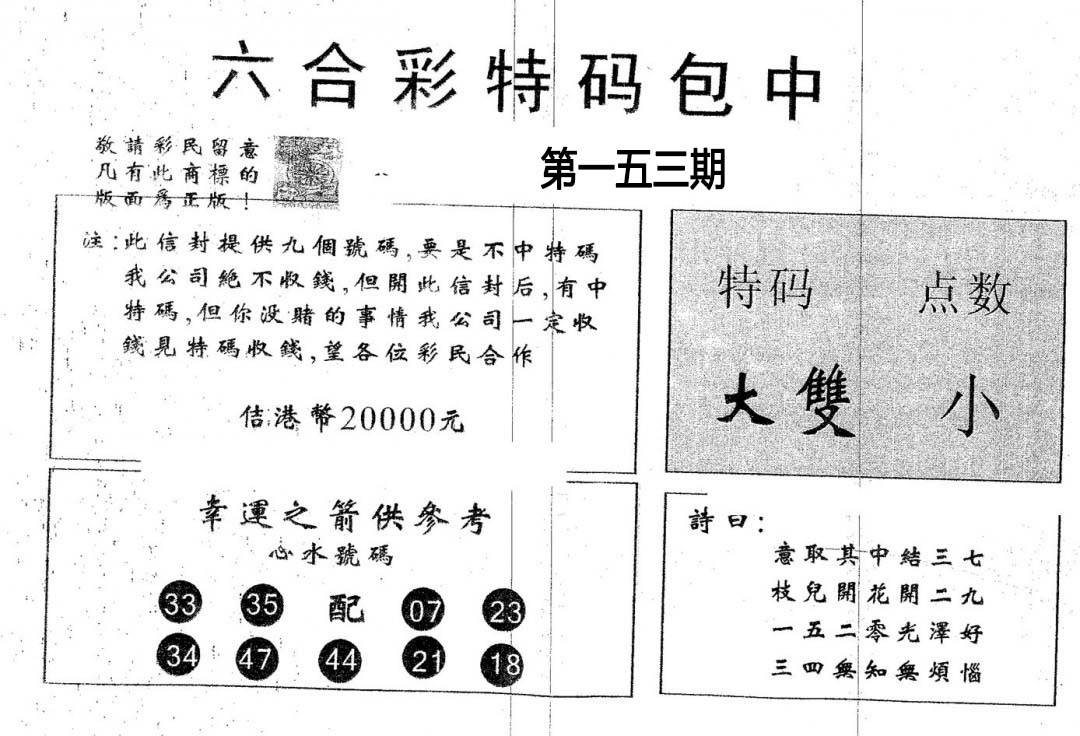 六合彩特码包中
敬請彩民留意
凡有此商標的
版面爲正版！
第一五三期
注:此信封提供九個號碼,要是不中特碼
我公司絶不收錢,但開此信封后,有中
特碼,但你没賭的事情我公司一定收
錢見特碼收錢,望各位彩民合作
佶港幣20000元
特码 点数
大雙 小
幸運之箭供參考
心水號碼
33 35 配 07 23
34 47 44 21 18
詩曰:
意取其中結三七
枝兒開花開二九
一五二零光澤好
三四無知無煩惱